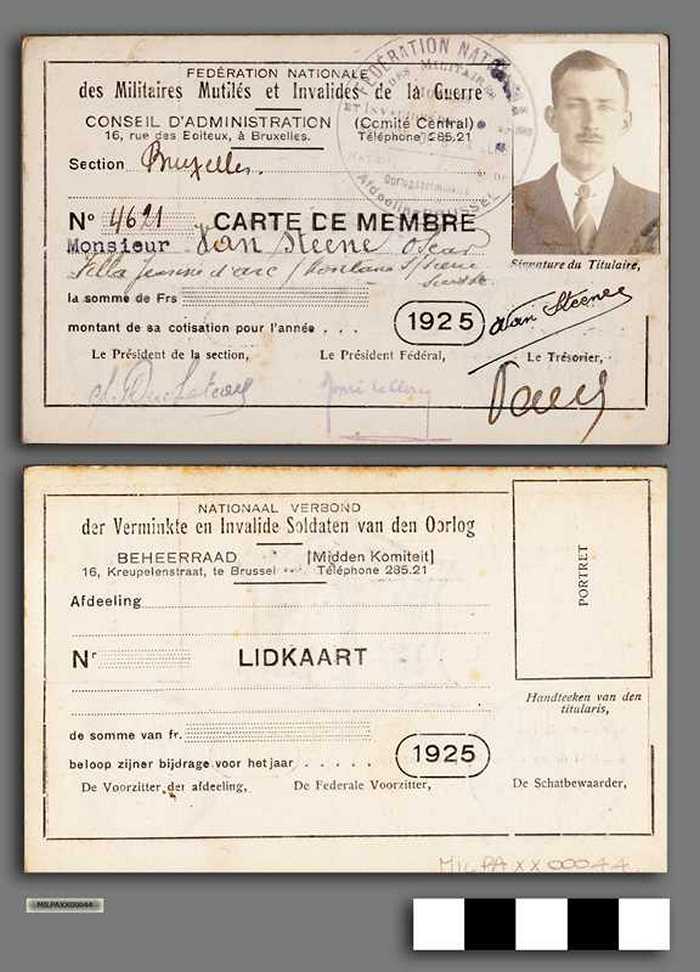 FEDÉRATION NATIONALE
des Militaires Mutilés et Invalides de la Guerre
CONSEIL D'ADMINISTRATION (Comité Central)
16, rue des Eoiteux, à Bruxelles. Téléphone 285.21
FÉDÉRATION NATIONALE
DES MILITAIRES
ET INVALIDES
Afdeeling BRUSSEL
Section Bruxelles.
Nº 4621 CARTE DE MEMBRE
Monsieur Van Steene Oscar
Villa Jeanne d'arc / Montana s/Sierre
Suisse
Signature du Titulaire,
Van Steene
la somme de Frs
montant de sa cotisation pour l'année . . . 1925
Le Président de la section, Le Président Fédéral, Le Trésorier,
NATIONAAL VERBOND
der Verminkte en Invalide Soldaten van den Oorlog
BEHEERRAAD [Midden Komiteit]
16, Kreupelenstraat, te Brussel Téléphone 285.21
PORTRET
Afdeeling
Nr LIDKAART
Handteeken van den
titularis,
de somme van fr.
beloop zijner bijdrage voor het jaar . . . . . 1925
De Voorzitter der afdeeling, De Federale Voorzitter, De Schatbewaarder,
MILPAXX00044
MILPAXX00044